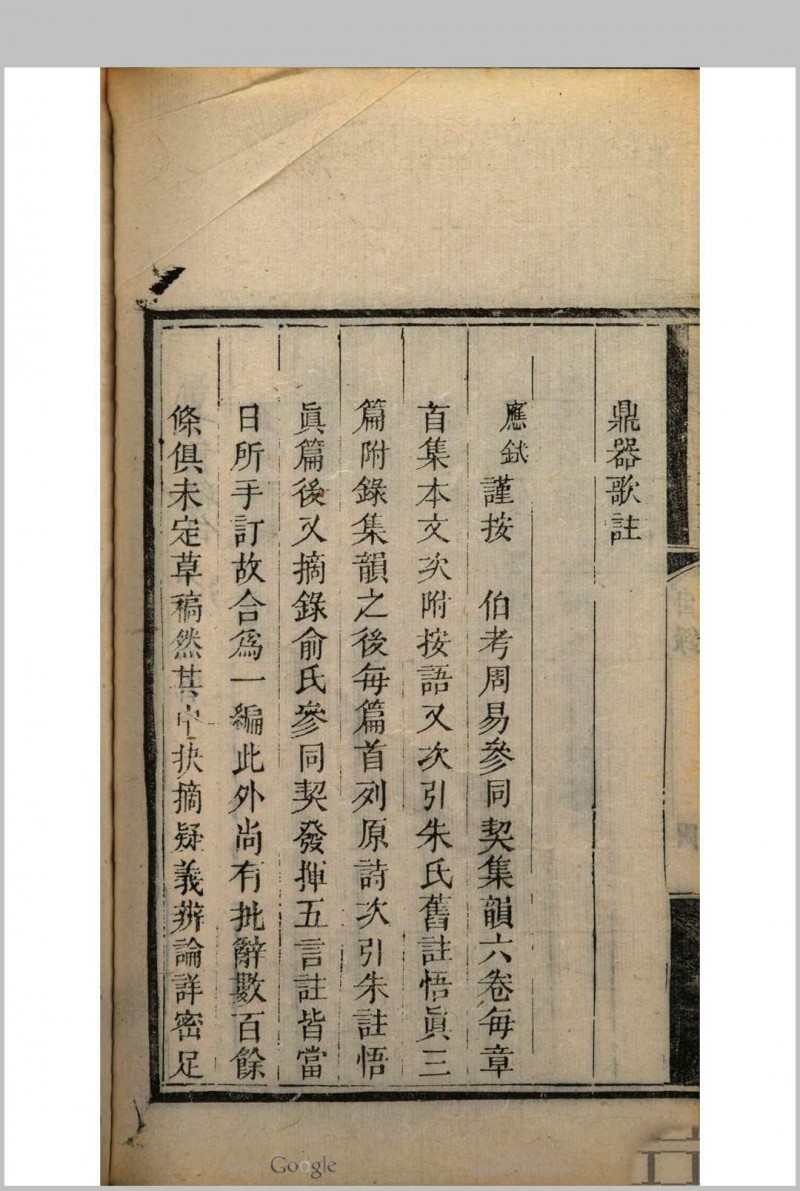 鼎器歌註
應鉽謹按　伯考周易參同契集韻六卷每章
首集本文次附按語又次引朱氏舊註悟眞三
篇附錄集韻之後每篇首列原詩次引朱註悟
眞篇後又摘錄俞氏參同契發揮五言註皆當
日所手訂故合爲一編此外尚有批辭數百餘
條俱未定草稿然其中抉摘疑義辨論詳密足
Google